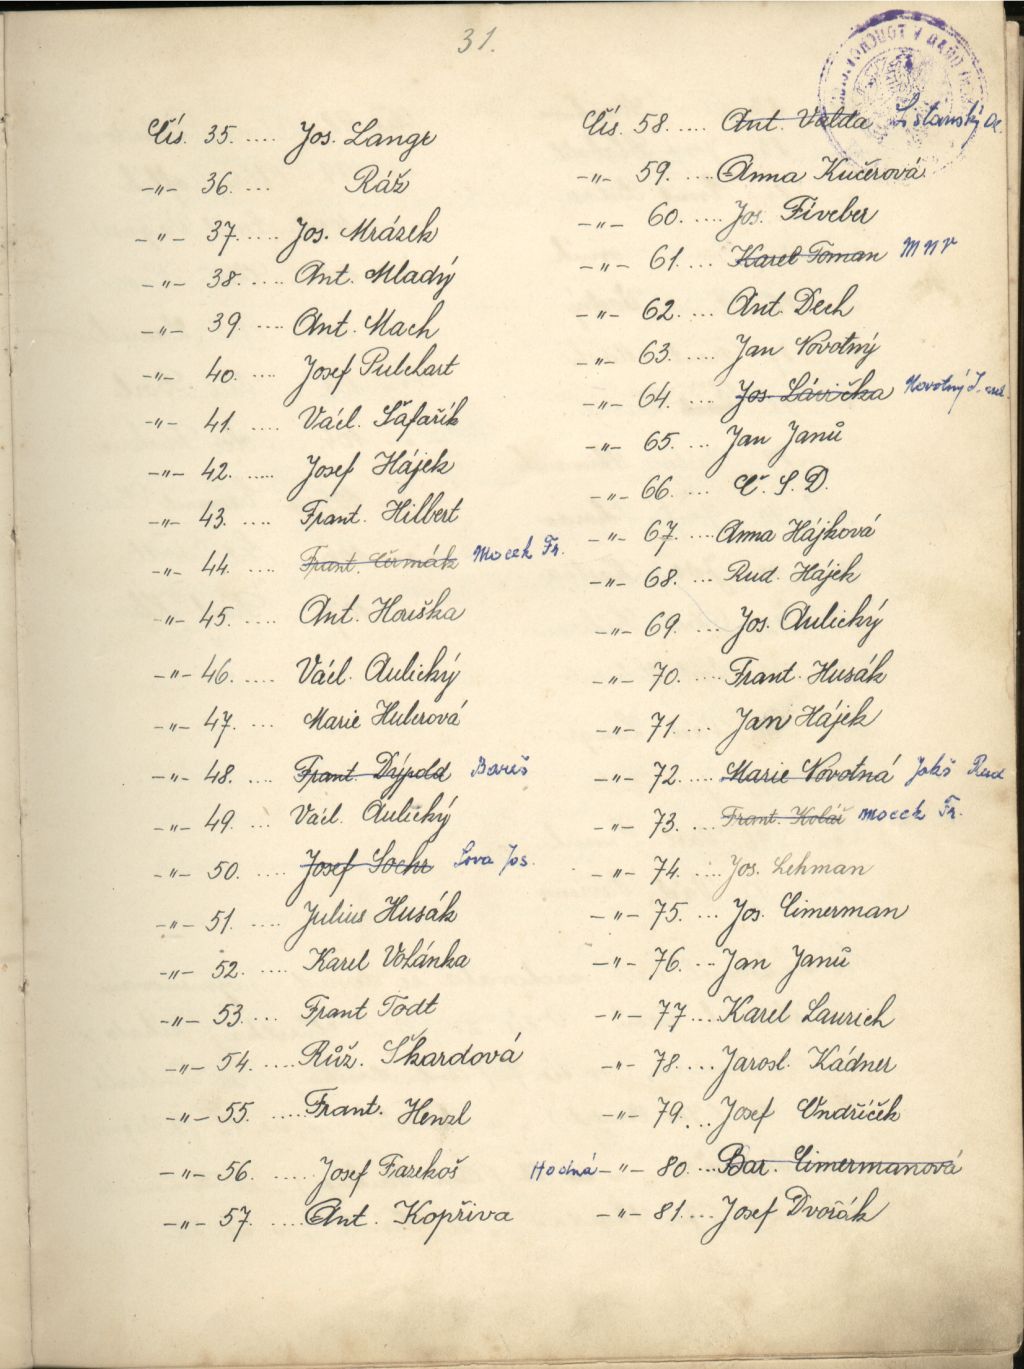 31.
Čís. 35. .... Jos. Lange
-"- 36. ... Ráž
-"- 37. .... Jos. Mrázek
-"- 38. .... Ant. Mladý
-"- 39. .... Ant. Mach
-"- 40. .... Josef Pulchart
-"- 41. .... Václ. Šafařík
-"- 42. .... Josef Hájek
-"- 43. .... Frant. Hilbert
-"- 44. .... Frant. Čermák Mocek Fr.
-"- 45. .... Ant. Houška
-"- 46. .... Václ. Aulický
-"- 47. ... Marie Hulerová
-"- 48. .... Frant Dýpold Bareš
-"- 49. ... Václ. Aulický
-"- 50. .... Josef Sochr Sova Jos.
-"- 51. .... Julius Husák
-"- 52. .... Karel Volánka
-"- 53. ... Frant Todt
-"- 54. .... Růž. Škardová
-"- 55. .... Frant. Henzl
-"- 56. .... Josef Farekoš
-"- 57. .... Ant. Kopřiva
Čís. 58. .... Ant. Valda
-"- 59. .... Anna Kučerová
-"- 60. .... Jos. Fiveber
-"- 61. ... Karel Toman MNV
-"- 62. ... Ant. Dech
-"- 63. .... Jan Novotný
-"- 64. ... Jos. Lávička Novotný J.
-"- 65. ... Jan Janů
-"- 66. ... Č. S. D.
-"- 67. .... Anna Hájková
-"- 68. ... Rud. Hájek
-"- 69. ... Jos. Aulický
-"- 70. .... Frant. Husák
-"- 71. ... Jan Hájek
-"- 72. ... Marie Novotná Joláš Rud
-"- 73. ... Frant. Kolář Mocek Fr.
-"- 74. .... Jos. Lehman
-"- 75. ... Jos. Cimerman
-"- 76. ... Jan Janů
-"- 77 ... Karel Laurich
-"- 78. ... Jarosl. Kádner
-"- 79. ... Josef Ondříček
Hodná -"- 80. ... Bar. Cimermanová
-"- 81. ... Josef Dvořák